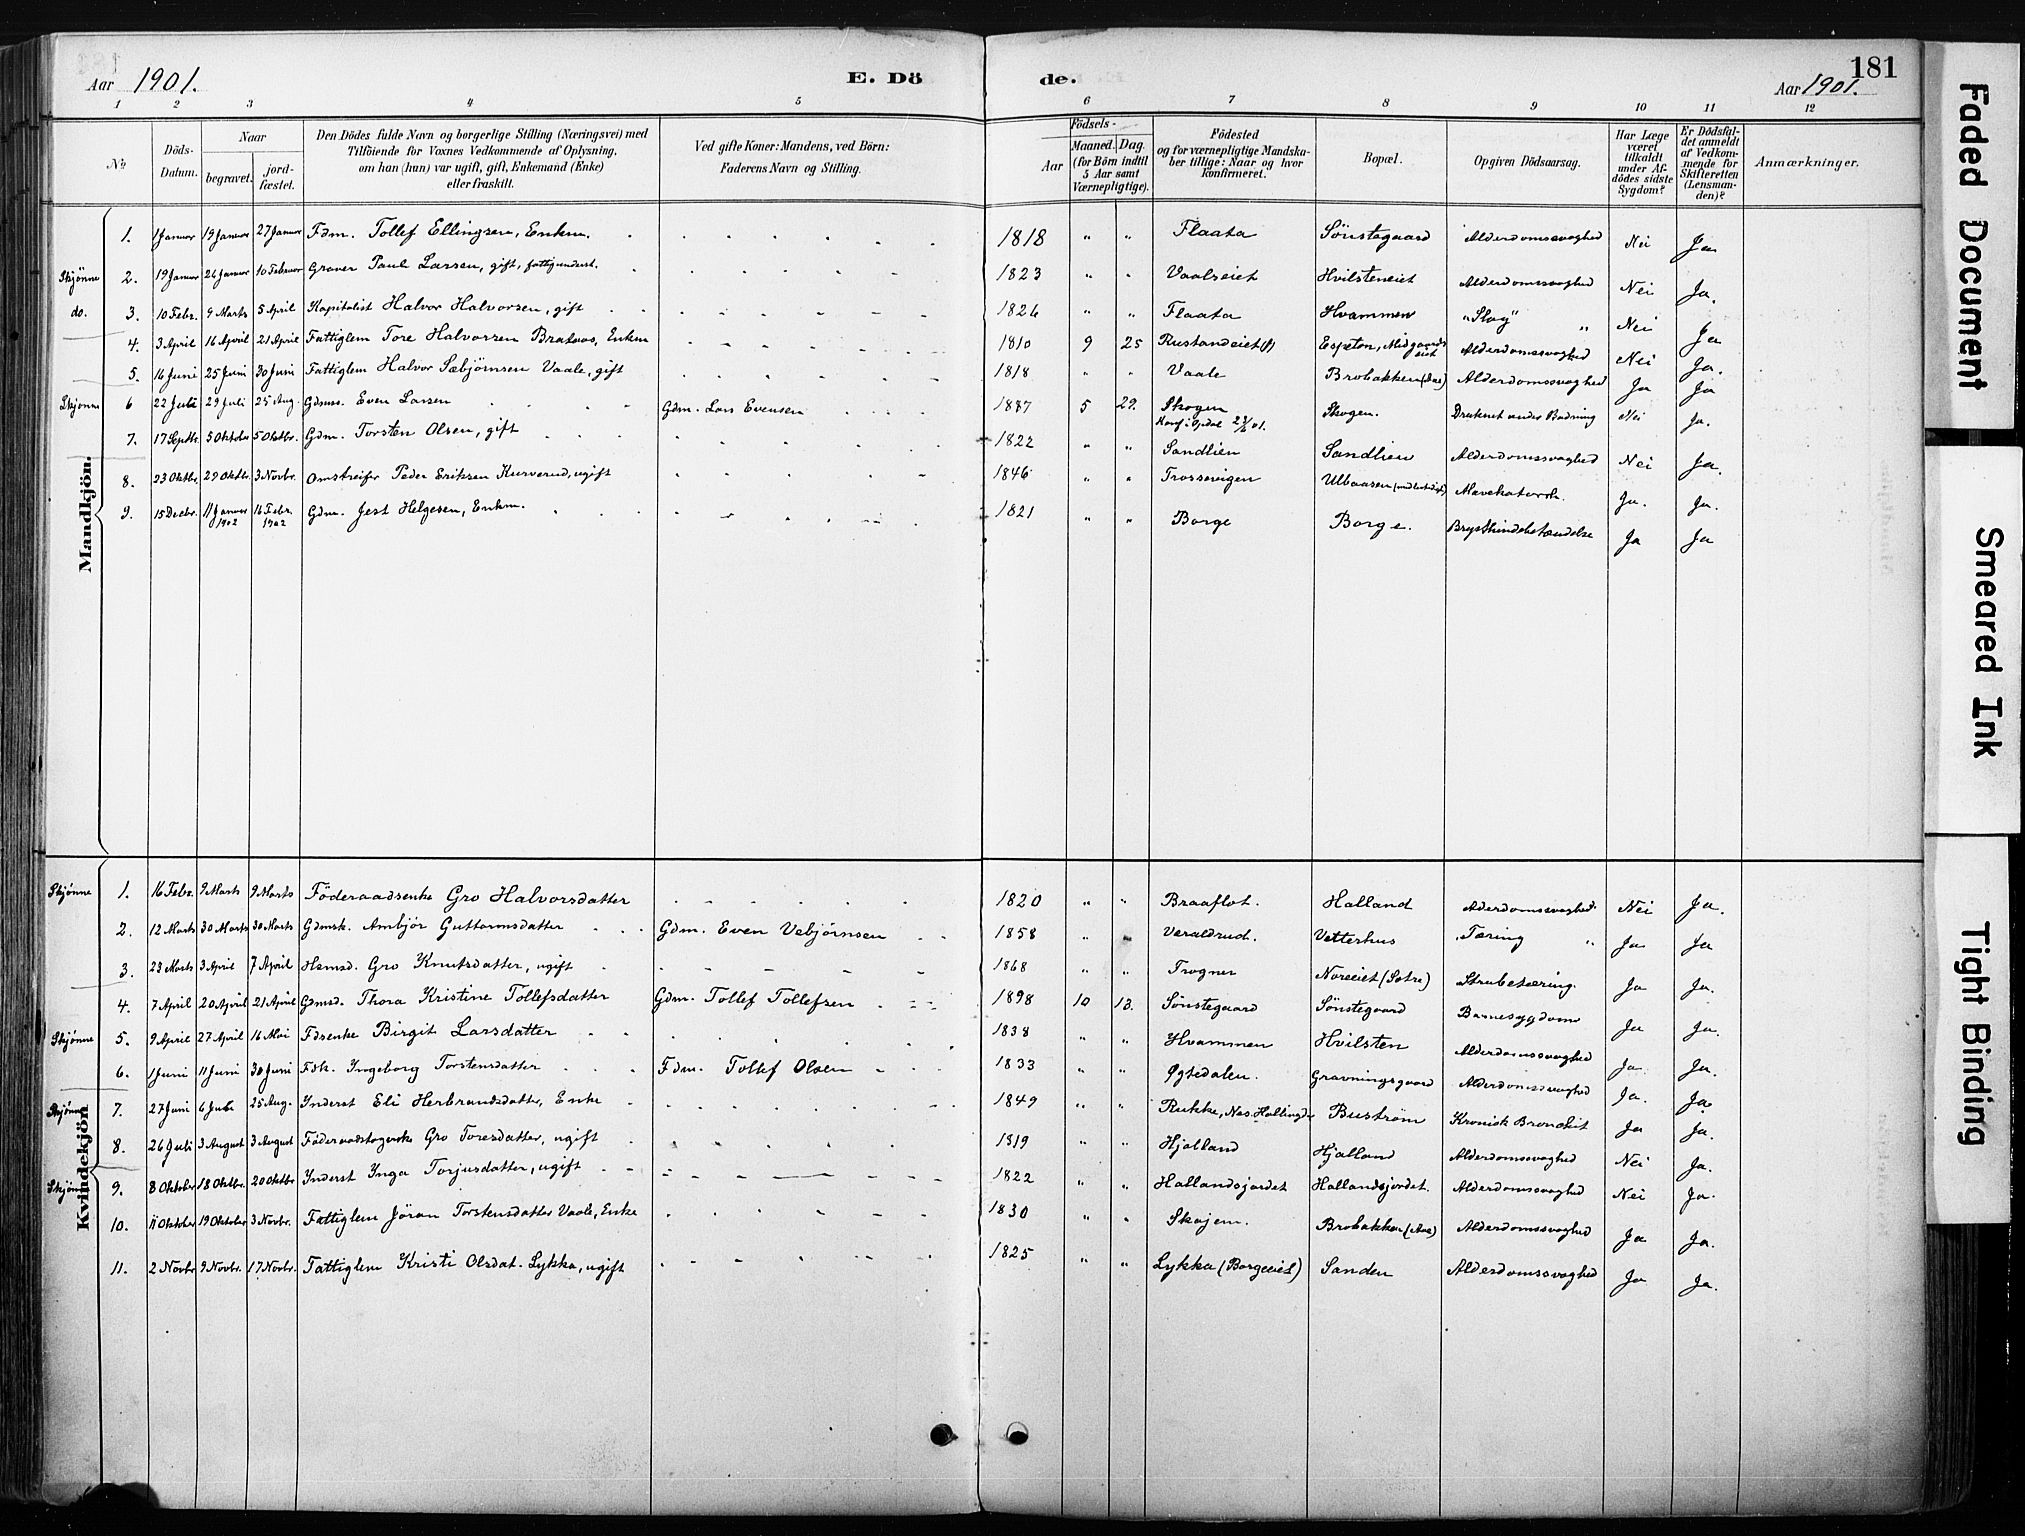 Aar 1901. E. Döde. Aar 1901. 181
1 2 3 4 5 6 7 8 9 10 11 12
No. Döds-Datum. Naar begravet. jordfæstet. Den Dödes fulde Navn og borgerlige Stilling (Næringsvei) med Tilföiende for Voxnes Vedkommende af Oplysning, om han (hun) var ugift, gift, Enkemand (Enke) eller fraskilt. Ved gifte Koner: Mandens, ved Börn: Faderens Navn og Stilling. Födsels- Aar Maaned. Dag. (for Börn indtil 5 Aar samt Værnepligtige). Födested og for værnepligtige Mandskaber tillige: Naar og hvor konfirmeret. Bopæl. Opgiven Dödsaarsag. Har Læge været tilkaldt under Afdödes sidste Sygdom? Er Dödsfaldet anmeldt af Vedkommende for Skifteretten (Lensmanden)? Anmærkninger.
Mandkjön.
1. 1 Januar 19 Januar 27 Januar Fdm. Tollef Ellingsen, Enkm. 1818 " " Flaata Sönstegaard Alderdomssvaghed Nei Ja
Skjönne 2. 19 Januar 26 Januar 10 Februar Graver Paul Larsen, gift, fattigunderst. 1823 " " Vaalseiet Hvilsteneiet Alderdomssvaghed Nei Ja.
do. 3. 10 Febr. 9 Marts 5 April Kapitalist Halvor Halvorsen, gift 1826 " " Flaata Hvammen "Slag" " Nei Ja
4. 3 April 16 April 21 April Fattiglem Tore Halvorsen Brataas, Enkem 1810 9 25 Rustandeiet Espeton, Midgaardseiet Alderdomssvaghed Nei Ja.
5. 16 Juni 25 Juni 30 Juni Fattiglem Halvor Sæbjörnsen Vaale, gift 1818 " " Vaale Brobakken (Aae) Alderdomssvaghed Ja Ja
Skjönne 6 22 Juli 29 Juli 25 Aug. Gdms. Even Larsen Gdm. Lars Evensen 1887 5 29. Skogen Skogen. Druknet under Badning Nei Ja.
7. 17 Septbr. 5 Oktober 5 Oktbr. Gdm. Torsten Olsen, gift 1822 " " Sandlien Sandlien Alderdomssvaghed Nei Ja.
8. 23 Oktbr. 29 Oktbr. 3 Novbr. Omstreifer Peder Eriksen Kurverud, ugift 1846 " " Trossovigen Ulbaasen Mavekatarrh. Ja. Ja.
9. 15 Decbr. 11 Januar 1902 16 Febr. 1902 Gdm. Jest Helgesen, Enkm. 1821 " " Borge Borge. Brysthindebetændelse Ja Ja
Kvindekjön
Skjönne 1. 16 Febr. 9 Marts 9 Marts Föderaadsenke Gro Halvorsdatter 1820 " " Braaflot. Halland Alderdomssvaghed. Nei Ja.
2. 12 Marts 30 Marts 30 Marts Gdmsk. Ambjör Guttormsdatter Gdm. Even Vebjörnsen 1858 " Veraldrud. Vetterhus Tæring " Ja Ja
3. 23 Marts 3 April 7 April Hsmsd. Gro Knutsdatter, ugift 1868 " " Trogner Noreeiet (Sotre) Strubetæring. Ja Ja.
4. 7 April 20 April 21 April Gdmsd. Thora Kristine Tollefsdatter Gdm. Tollef Tollefsen 1898 10 13. Sönstegaard Sönstegaard Barnesygdom Ja Ja.
Skjönne 5. 9 April 27 April 16 Mai Fdsenke Birgit Larsdatter 1838 " " Hvammen Hvilsten Alderdomssvaghed Ja. Ja.
6. 1 Juni 11 Juni 30 Juni Fdk. Ingeborg Torstensdatter Fdm. Tollef Olsen 1833 " " Øgtedalen. Gravningsgaard Alderdomssvaghed Ja. Ja
Skjönne 7. 27 Juni 6 Juli 25 Aug. Inderst Eli Herbrandsdatter, Enke 1849 " " Rukke, Nes. Hallingd. Buström Kronisk Bronchit Ja Ja.
8. 26 Juli 3 August 3 August Föderaadstagerske Gro Toresdatter, ugift 1819 " " Hjalland Hjalland Alderdomssvaghed Nei Ja.
Skjönne 9. 8 Oktober 18 Oktbr. 20 Oktbr Inderst Inga Torjusdatter, ugift 1822 " " Hallandsjordet Hallandsjordet. Alderdomssvaghed Nei Ja.
10. 11 Oktober 19 Oktober 3 Novbr. Fattiglem Jöran Torstensdatter Vaale, Enke 1830 " " Skajem. Brobakken (Aae) Alderdomssvaghed Ja Ja.
11. 2 Novbr 9 Novbr. 17 Novbr. Fattiglem Kristi Olsdat. Lykka, ugift 1825 " " Lykka (Borgeeiet) Sanden Alderdomssvaghed Ja Ja.
Faded Document
Smeared Ink
Tight Binding